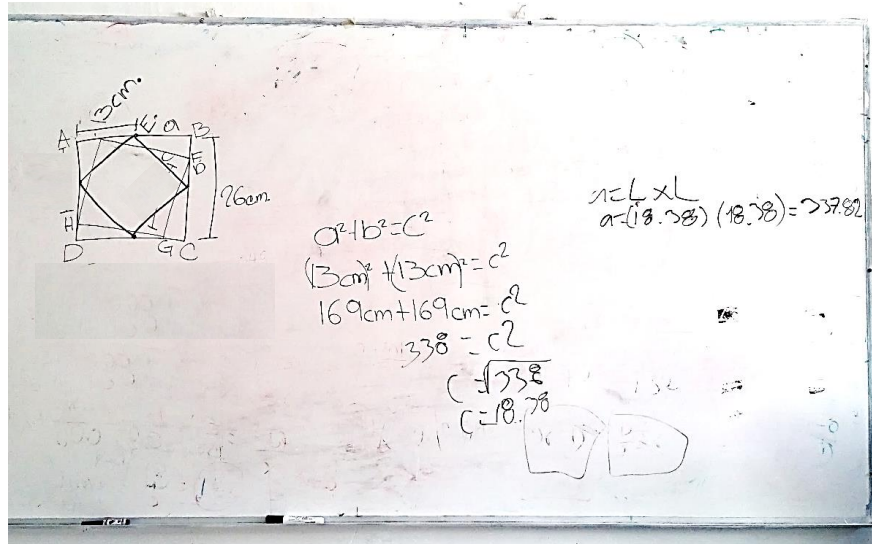 13cm.
A E a B
C F
b
26cm
H
D G C
a²+b²=c²
(13cm)²+(13cm)²=c²
169cm+169cm=c²
338=c²
c=√338
c=18.38
a=L×L
a=(18.38)(18.38)=337.82